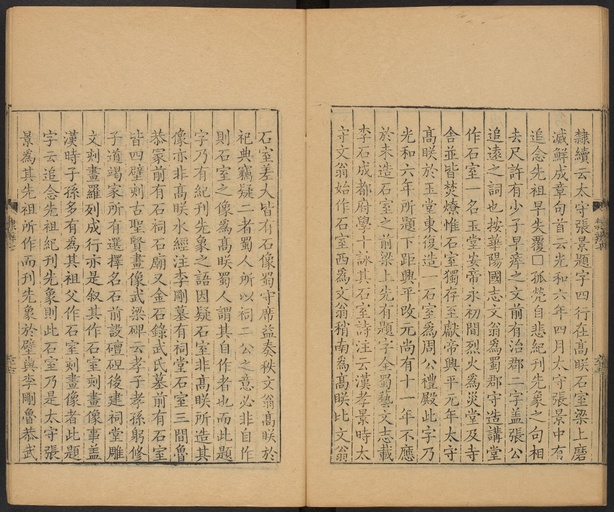 隸續云太守張景題字四行在高䀢石室梁上磨
滅鮮成章句首云光和六年四月太守張景中有
追念先祖早失覆□孤煢自悲紀刊先象之句相
去尺許有少子早瘁之文前有治郡二字盖張公
追遠之詞也按華陽國志文翁為蜀郡守造講堂
作石室一名玉堂安帝永初間烈火為災堂及寺
舍並皆焚燎惟石室獨存至獻帝興平元年太守
高䀢於玉堂東復造一石室為周公禮殿此字乃
光和六年所題下距興平改元尚有十一年不應
於未造石室之前梁上先有題字全蜀藝文志載
李石成都府學十詠其石室詩注云漢孝景時太
守文翁始作石室西為文翁稍南為高䀢比文翁
石室差大皆有石像蜀守席益奏秩文翁高䀢於
祀典竊疑二者蜀人所以祠二公之意必非自作
則石室之像為高䀢蜀人謂其自作者也而此題
字乃有紀刊先象之語因疑石室非高䀢所造其
像亦非高䀢水經注李剛墓有祠堂石室三間魯
恭冢前有石祠石廟又金石錄武氏墓前有石室
皆四壁刻古聖賢畫像武梁碑云孝子孝孫躬修
子道竭家所有選擇名石前設礓磾後建祠堂雕
文刻畫羅列成行亦是叙其作石室刻畫像事盖
漢時子孫多有為其祖父作石室刻畫像者此題
字云追念先祖紀刊先象則此石室乃是太守張
景為其先祖所作而刊先象於壁與李剛魯恭武